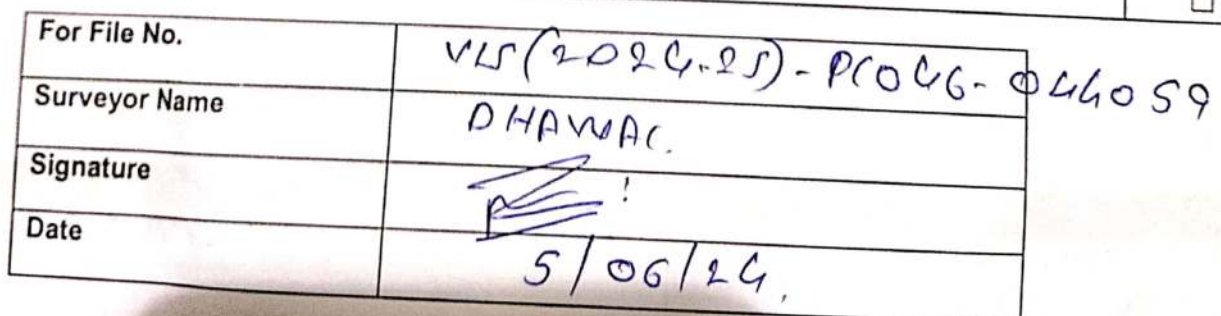 For File No. VIS(2024-25)-PL046-044059
Surveyor Name DHAWAL.
Signature
Date 5/06/24